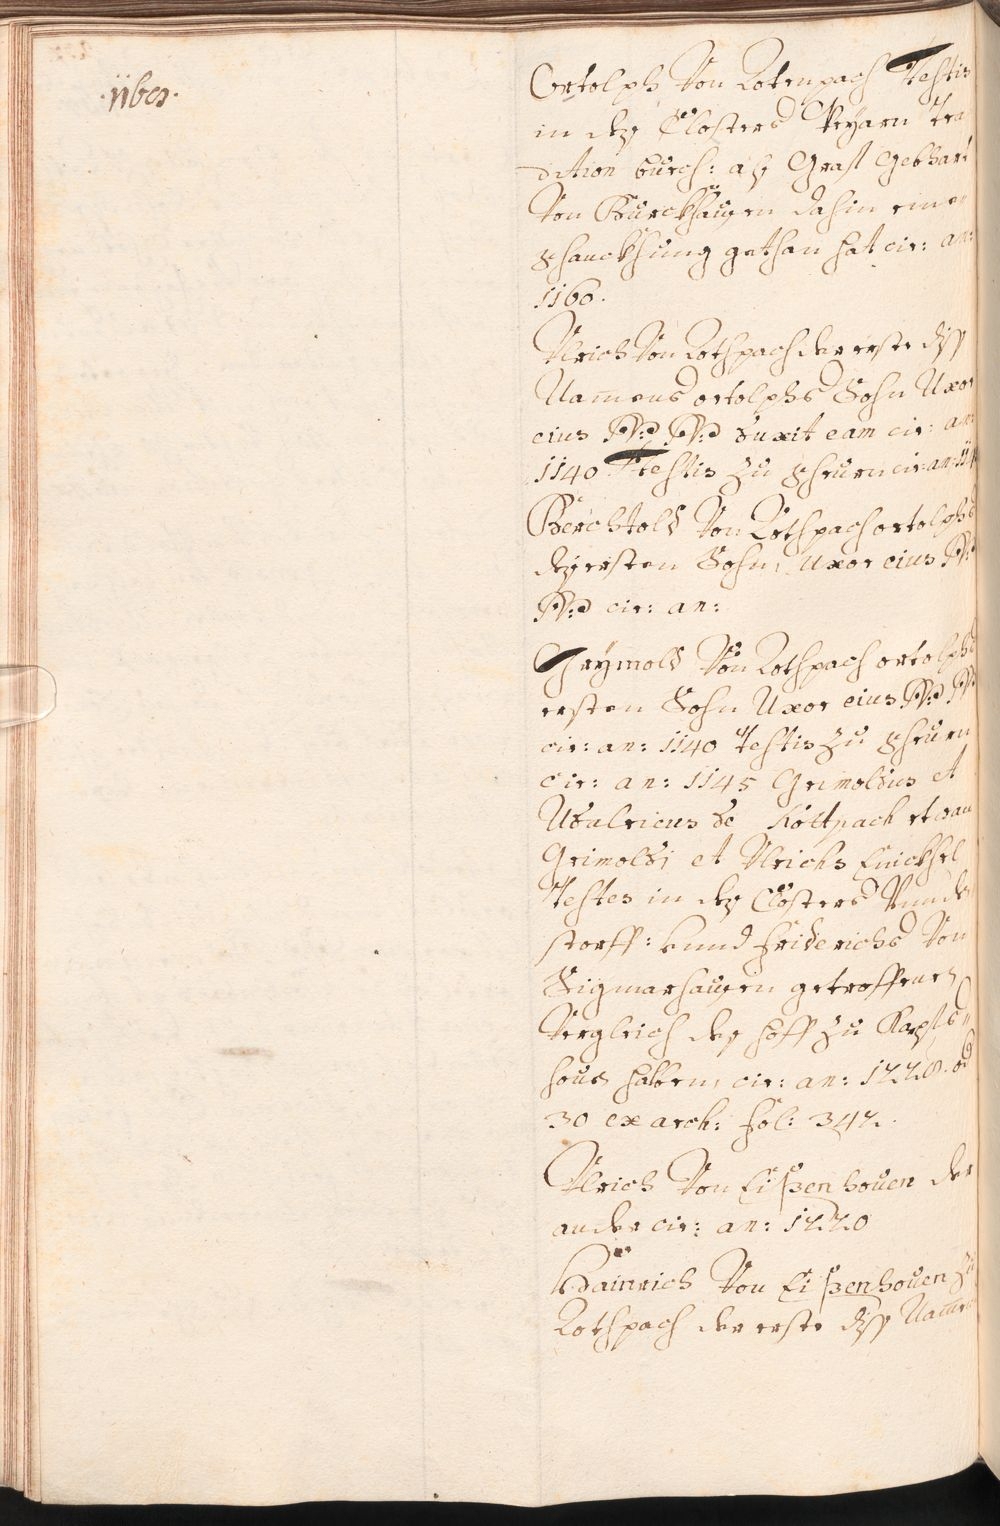 ·1160·
Ortolph Von Rotenpach Testis
in deß Closters Weyarn Tra
dition buech: alß Graf Gebhart
Von Burckhausen dahin eine
schanckhung gethan hat cir: an:
1160.
Ulrich Von Rothpach der erste diß
Namens ortolphs Sohn Uxor
eius N: N: duxit eam cir: an:
1140 testis zu scheurn cir: an:
Berchtold Von Rothpach ortolphs
deß ersten Sohn, Uxor eius N:
N: cir: an:
Grymold Von Rothpach ortolphs
ersten Sohn Uxor eius N: N:
cir: an: 1140 testis zu scheurn
cir: an: 1145 Grimoldus et
Udalricus de Röttpach
Grimoldi et Ulrichs Einckhel
Testes in deß Closters Unnder
storff: Vnnd Friderichs Von
Sigmarhausen getroffenen
Vergleich deß hoff zu
houen halben, cir: an: 1228. od
30 ex arch: fol: 342.
Ulrich Von Eißenhouen der
ander cir: an: 1220
Hainrich Von Eißenhouen zu
Rothpach der erste diß Namens